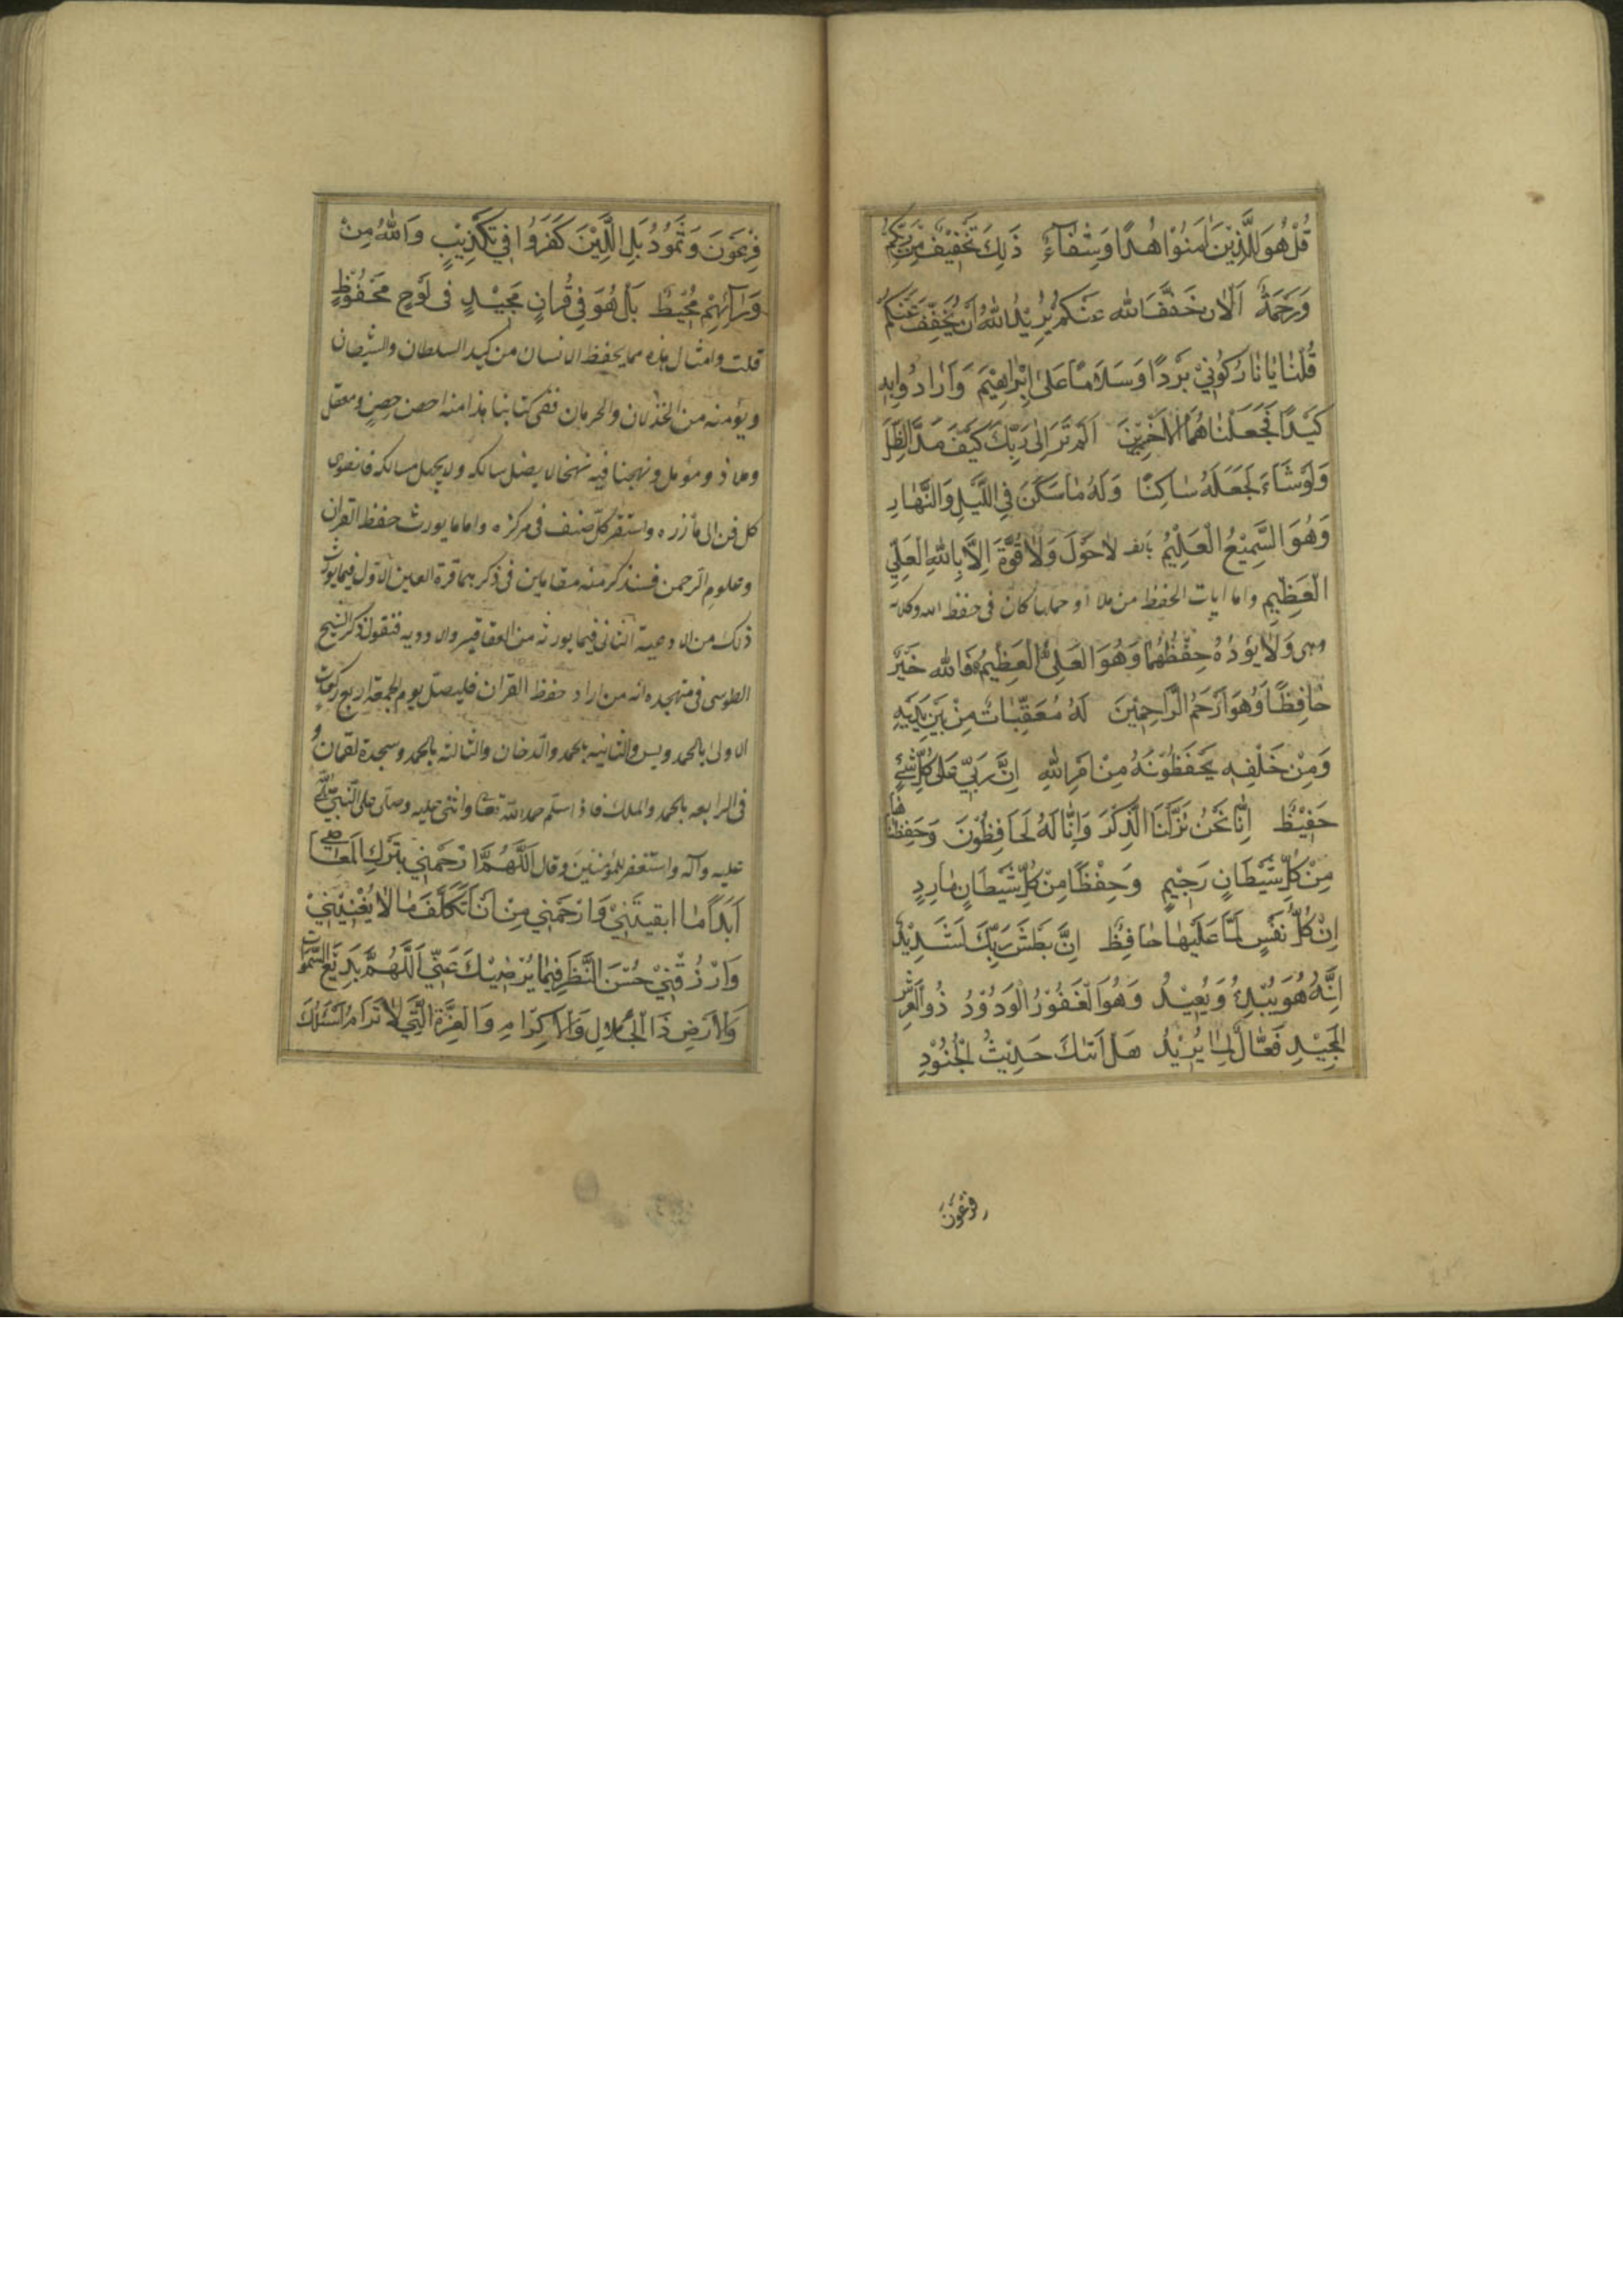 قُلْ هُوَ لِلَّذِيْنَ اٰمَنُوْا هُدًا وَشِفٰآءٌ ذَلِكَ تَخْفِيْفٌ مِنْ رَبِّكُمْ
وَرَحْمَةٌ اَلْاٰنَ خَفَّفَ اللّٰه عَنْكُمْ يُرِيْدُ اللّٰهُ اَنْ يُخَفِّفَ عَنْكُمْ
قُلْنٰا يٰا نٰارُ كُوْنِيْ بَرْدًا وَسَلَامًا عَلىٰ اِبْرٰاهِيْمَ وَاَرٰادُوا بِهِ
كَيْدًا فَجَعَلْنٰاهُمُ الْاَخْسَرِيْنَ اَلَمْ تَرَ اِلىٰ رَبِّكَ كَيْفَ مَدَّ الظِّلَّ
وَلَوْ شَاءَ لَجَعَلَهُ سٰاكِنًا وَلَهُ مٰا سَكَنَ فِي اللَّيْلِ وَالنَّهٰارِ
وَهُوَ السَّمِيْعُ الْعَلِيْمُ لاٰ حَوْلَ وَلاٰ قُوَّةَ اِلاَّ بِاللّٰهِ الْعَلِيِّ
الْعَظِيْمِ واما ايات الحفظ من تلاها او حملها كان فى حفظ الله وكلائه
وهى وَلاٰ يَؤُدُهُ حِفْظُهُمٰا وَهُوَ الْعَلِىُّ الْعَظِيْمُ فَاللّٰه خَيْرٌ
حٰافِظًا وَهُوَ اَرْحَمُ الرَّاحِمِيْنَ لَهُ مُعَقِّبٰاتٌ مِنْ بَيْنِ يَدَيْهِ
وَمِنْ خَلْفِهِ يَحْفَظُوْنَهُ مِنْ اَمْرِ اللّٰهِ اِنَّ رَبِّيْ عَلىٰ كُلِّ شَيْءٍ
حَفِيْظٌ اِنّٰا نَحْنُ نَزَّلْنَا الذِّكْرَ وَاِنّٰا لَهُ لَحَافِظُوْنَ وَحَفِظْنٰاهٰا
مِنْ كُلِّ شَيْطَانٍ رَجِيْمٍ وَحِفْظًا مِنْ كُلِّ شَيْطَانٍ مٰارِدٍ
اِنْ كُلُّ نَفْسٍ لَمّٰا عَلَيْهٰا حٰافِظٌ اِنَّ بَطْشَ رَبِّكَ لَشَدِيْدٌ
اِنَّهُ هُوَ يُبْدِئُ وَيُعِيْدُ وَهُوَ الْغَفُوْرُ الْوَدُوْدُ ذُو الْعَرْشِ
الْمَجِيْدِ فَعّٰالٌ لِمٰا يُرِيْدُ هَلْ اَتٰىكَ حَدِيْثُ الْجُنُوْدِ
فِرْعَوْنَ
فِرْعَوْنَ وَثَمُوْدُ بَلِ الَّذِيْنَ كَفَرُوْا فِيْ تَكْذِيْبٍ وَاللّٰهُ مِنْ
وَرٰآئِهِمْ مُحِيْطٌ بَلْ هُوَ فِيْ قُرْاٰنٍ مَجِيْدٍ فى لَوْحٍ مَحْفُوْظٍ
قلت وامثال هذه مما يحفظ الانسان من كيد السلطان والشيطان
ويؤمنه من الخذلان والحرمان ففى كتابنا هذا منه احصن حصنٍ ومعقل
وملاذ ومؤمل ونهجنا فيه نهجا لا يضل سالكه ولا يجهل مسالكه فانضوى
كل فن الى مأزره واستقر كلّ صنف فى مركزه واما ما يورث حفظ القران
وعلوم الرحمن فسنذكر منه مقامين فى ذكرهما قرة العين الاوّل فيما يورث
ذلك من الادعية الثانى فيما يورثه من العقاقير والادويه فنقول ذكر الشيخ
الطوسى فى متهجده انه من اراد حفظ القران فليصلّ يوم الجمعة اربع ركعات
الاولى بالحمد ويس والثانيه بالحمد والدخان والثالثه بالحمد وسجدة لقمان و
فى الرابعه بالحمد والملك فاذا سلم حمد اللّه تعالى واثنى عليه وصلّى على النبىّ صلى اللّه
عليه وآله واستغفر للمؤمنين وقال اَللّٰهُمَّ ارْحَمْنِيْ بِتَرْكِ الْمَعٰاصِيْ
اَبَدًا مٰا ابقيتَنِيْ وَارْحَمْنِي مِنْ اَنْ اَتَكَلَّفَ مٰا لاٰ يُعْنِيْنِيْ
وَارْزُقْنِيْ حُسْنَ النَّظَرِ فِيمٰا يُرْضِيْكَ عَنِّي اَللّٰهُمَّ بَدِيْعَ السَّمٰوٰاتِ
وَالْاَرْضِ ذَا الْجَلاٰلِ وَالْاِكْرٰامِ وَالْعِزَّةِ الَّتِيْ لاٰ تُرٰامُ اَسْئَلُكَ